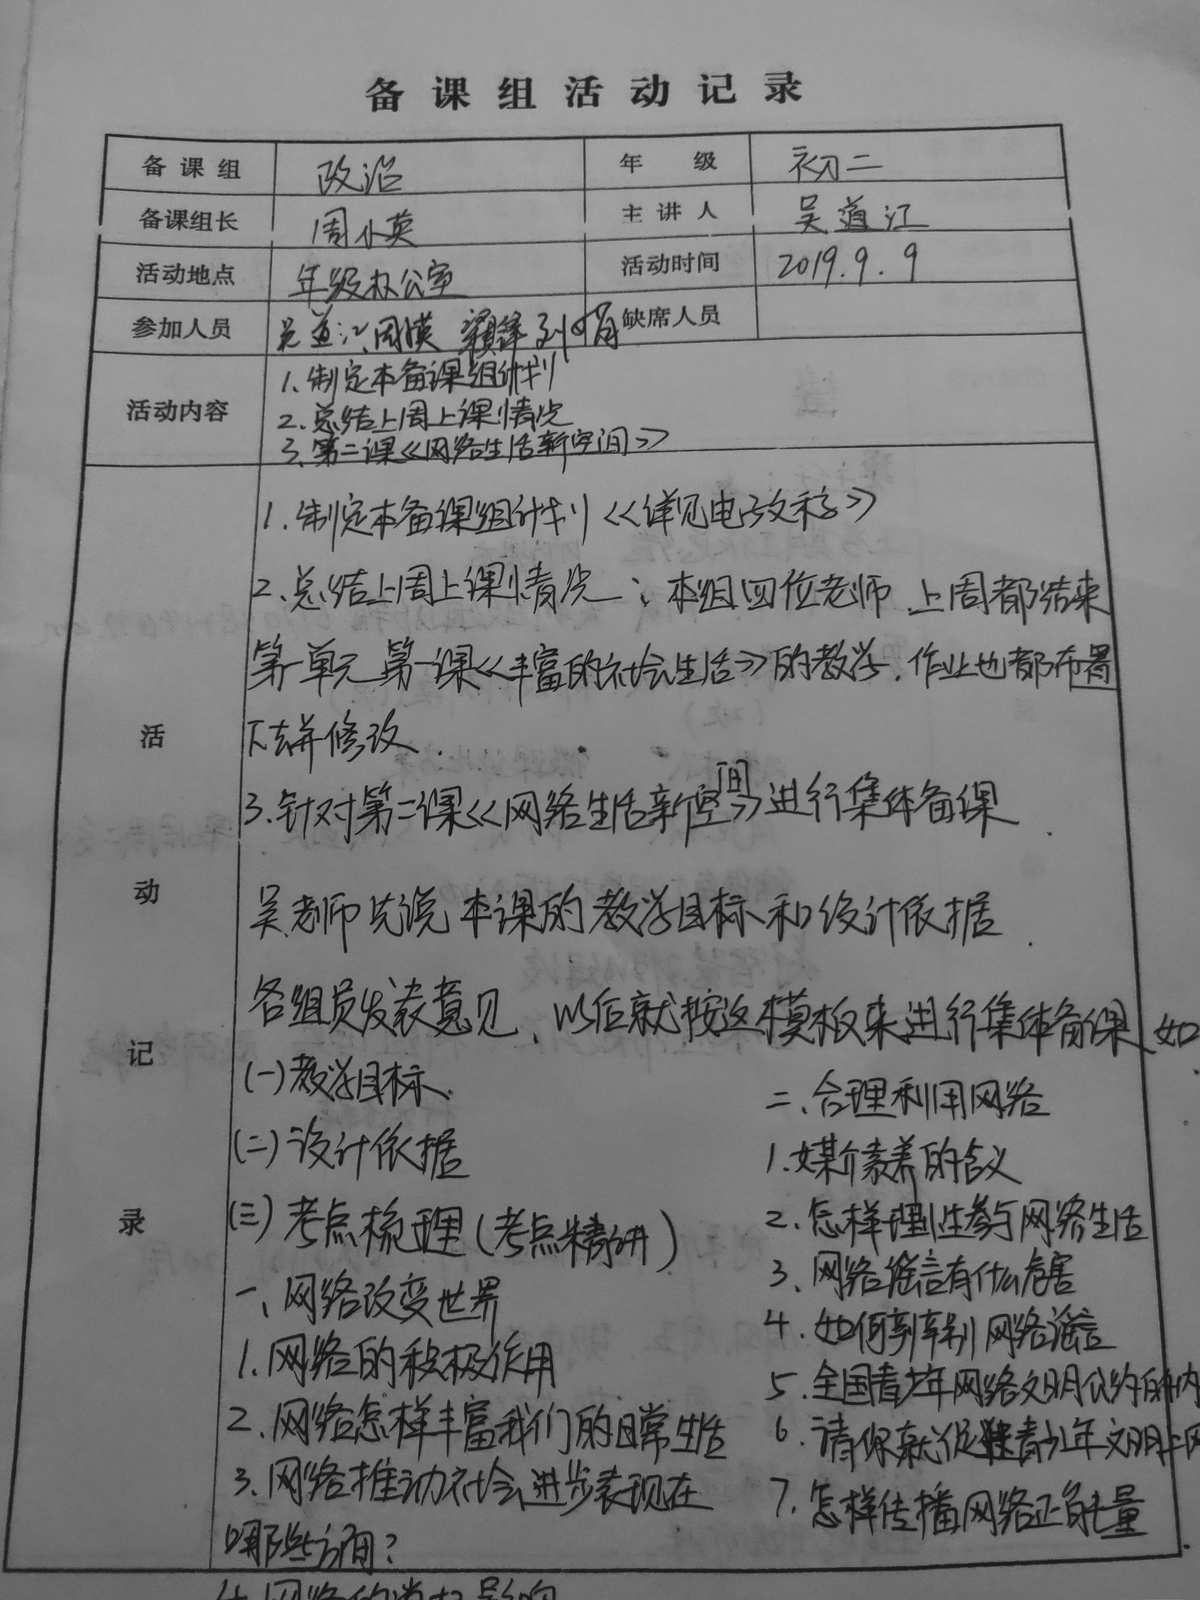 备课组活动记录
备课组 政治 年级 初二
备课组长 周小英 主讲人 吴道江
活动地点 年级办公室 活动时间 2019.9.9
参加人员 吴道江 周 缺席人员
活动内容
1、制定本备课组计划
2、总结上周上课情况
3、第二课《网络生活新空间》
活动记录
1、制定本备课组计划《详见电子文稿》
2、总结上周上课情况：本组四位老师，上周都结束
第一单元第一课《丰富的社会生活》的教学，作业也都布置
下去并修改.
3、针对第二课《网络生活新空间》进行集体备课
吴老师先说本课的教学目标和设计依据
各组员发表意见，以后就按这模板来进行集体备课，如
(一)教学目标
(二)设计依据
(三)考点梳理(考点精研)
一、网络改变世界
1.网络的积极作用
2.网络怎样丰富我们的日常生活
3.网络推动社会进步表现在
哪些方面?
4.网络的消极影响
二、合理利用网络
1.媒介素养的含义
2.怎样理性参与网络生活
3、网络谣言有什么危害
4.如何辨别网络谣言
5.全国青少年网络文明公约的内
6.请你就促进青少年文明上网
7.怎样传播网络正能量